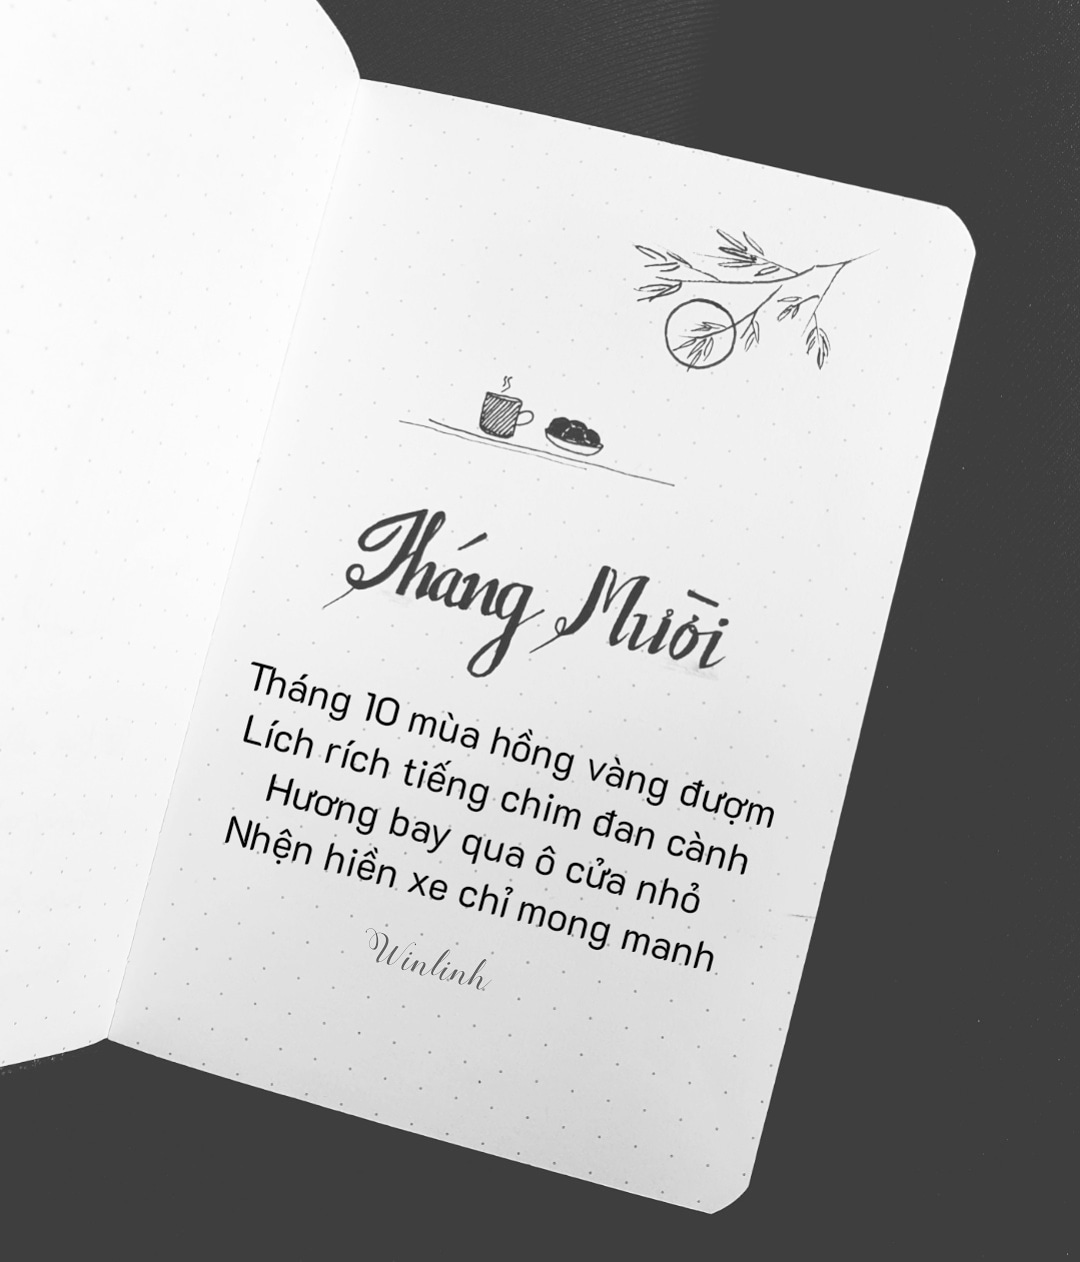 Tháng Mười
Tháng 10 mùa hồng vàng đượm
Lích rích tiếng chim đan cành
Hương bay qua ô cửa nhỏ
Nhện hiền xe chỉ mong manh
Winlinh